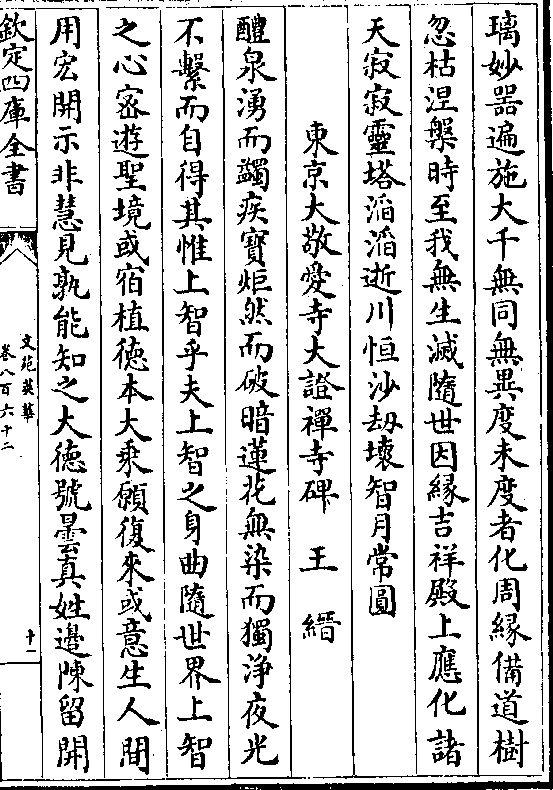 璃妙器遍施大千無同無異度未度者化周緣備道樹
忽枯涅槃時至我無生滅隨世因緣吉祥殿上應化諸
天寂寂靈塔滔滔逝川恒沙劫壞智月常圓
東京大敬愛寺大證禪寺碑　王縉
醴泉湧而蠲疾寶炬然而破暗蓮花無染而獨淨夜光
不繫而自得其惟上智乎夫上智之身曲隨世界上智
之心密遊聖境或宿植德本大乘願復來或意生人間
用宏開示非慧見孰能知之大德號曇真姓邉陳留開
欽定四庫全書
文苑英華
卷八百六十二
十一